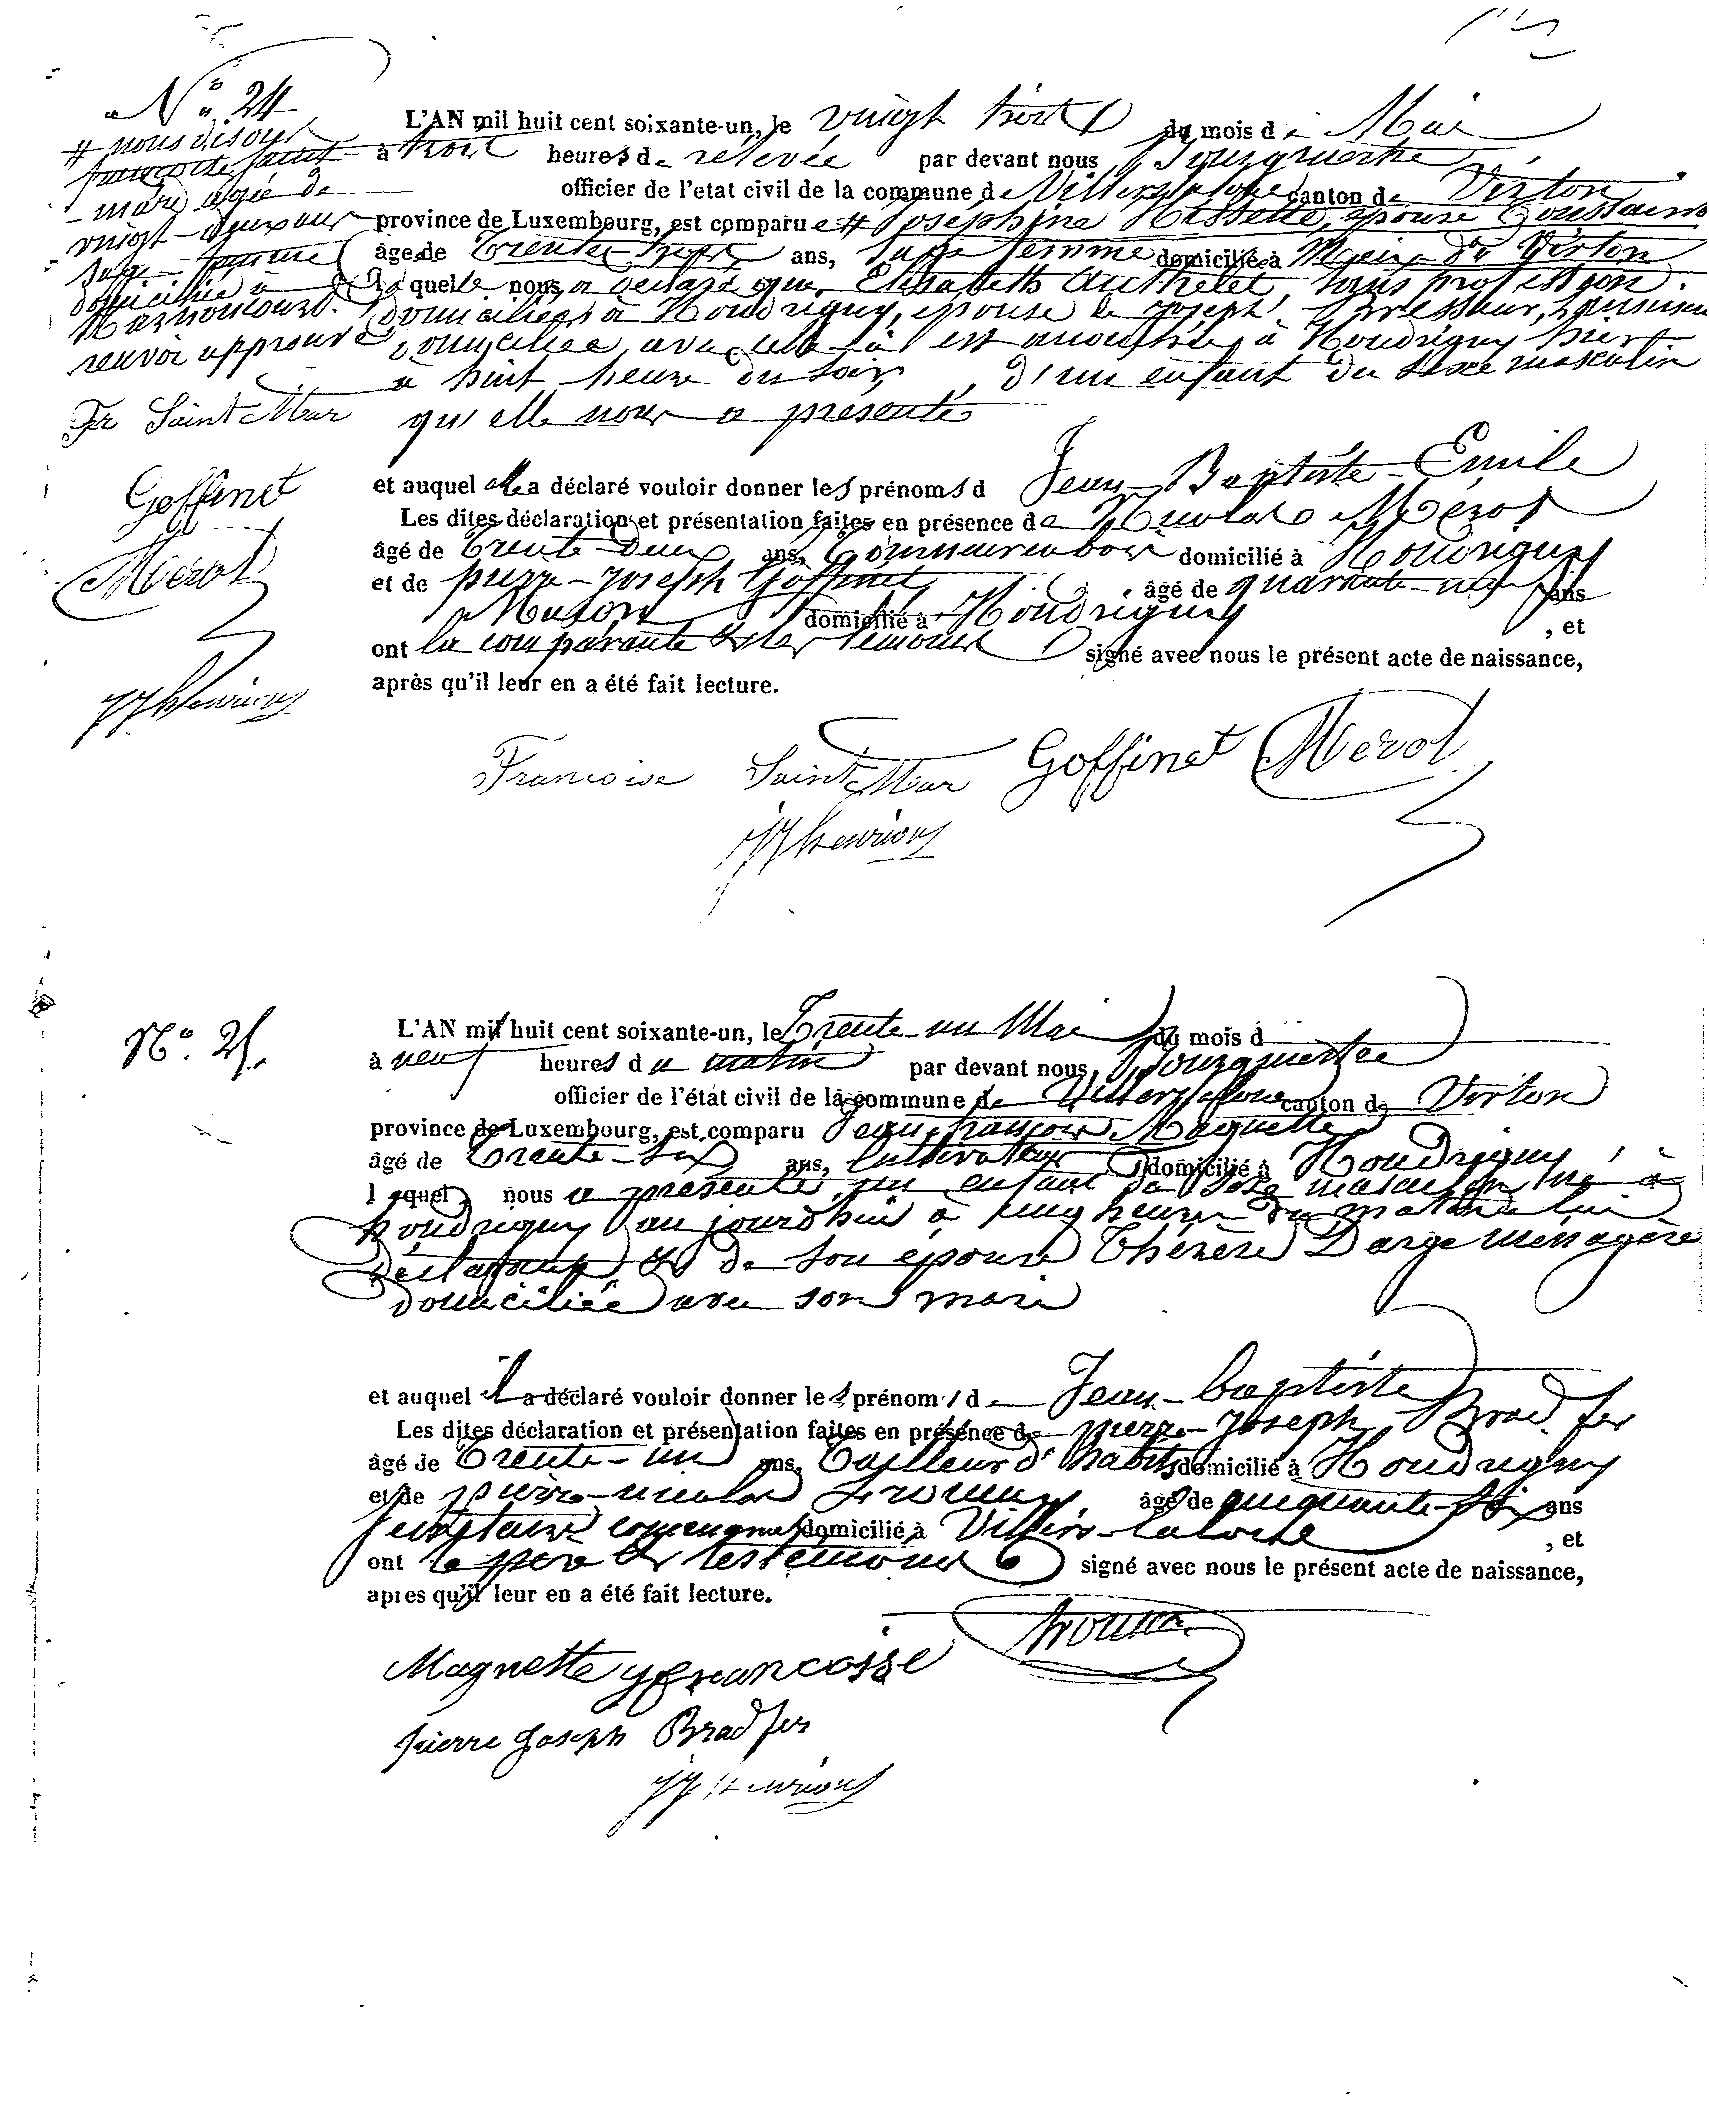 N° 24
# nous disons
françoise saint
-mard agée de
vingt-deux ans
sage-femme
domiciliée à
renvoi approuvé
Fr Saint Mar
Goffinet
Mérot
JJ henrion
L'AN mil huit cent soixante-un, le vingt trois du mois de Mai
à trois heures de relevée par devant nous, Bourgmestre
officier de l'état civil de la commune de Villers la loue canton de Virton
province de Luxembourg, est comparu # Joséphine épouse Toussaint
âgée de Trente ans, sage femme domiciliée à de Virton
laquelle nous a déclaré que, Elisabeth Authelet, sans profession.
domiciliée à Houdrigny, épouse de joseph
domicilié avec celle-ci est accouchée, à Houdrigny hier
à huit heure du soir, d'un enfant du sexe masculin
qu'elle nous a présenté
et auquel elle a déclaré vouloir donner les prénoms de Jean-Baptiste-Emile
Les dites déclaration et présentation faites en présence de Nicolas Mérot
âgé de Trente-Deux ans, domicilié à Houdrigny
et de pierre-joseph Goffinet, âgé de quarante-neuf ans
Maçon domicilié à Houdrigny, et
ont la comparante & les témoins signé avec nous le présent acte de naissance,
après qu'il leur en a été fait lecture.
Francoise Saint Mar Goffinet Merot
JJ henrion
N° 25.
L'AN mil huit cent soixante-un, le Trente-un Mai du mois d
à neuf heures du matin par devant nous, Bourgmestre
officier de l'état civil de la commune de Villers la loue canton de Virton
province de Luxembourg, est comparu Jean françois Magnette
âgé de Trente-six ans, Cultivateur domicilié à Houdrigny,
lequel nous a présenté un enfant du sexe masculin né à
houdrigny aujourd'hui à cinq heures du matin de lui
Déclarant, & de son épouse Thérèse Darge ménagère
domiciliée avec son mari
et auquel il a déclaré vouloir donner les prénoms de Jean-baptiste
Les dites déclaration et présentation faites en présence de pierre-joseph Bradfer
âgé de Trente-un ans, Tailleur d'habits, domicilié à Houdrigny
et de pierre-nicolas âgé de cinquante-six ans
Secrétaire communal domicilié à Villers-laloue, et
ont le père & les témoins signé avec nous le présent acte de naissance,
apres qu'il leur en a été fait lecture.
Magnette jfrancosse
pierre Joseph Bradfer
JJ henrion